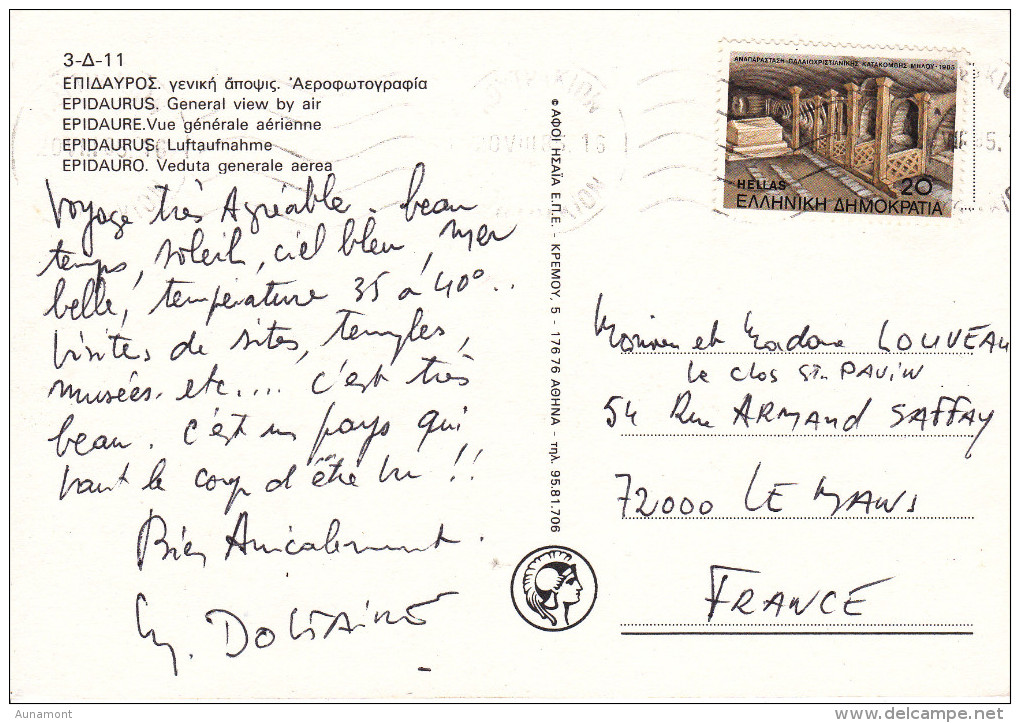 3-Δ-11
ΕΠΙΔΑΥΡΟΣ. γενική ἄποψις. Ἀεροφωτογραφία
EPIDAURUS. General view by air
EPIDAURE.Vue générale aérienne
EPIDAURUS. Luftaufnahme
EPIDAURO. Veduta generale aerea
Voyage très Agréable. beau
temps, soleil, ciel bleu, mer
belle, température 35 à 40°..
Visites de sites, temples,
musées. etc.... c'est très
beau. c'est un pays qui
vaut le coup d'être vu !!
Bien Amicalement.
© ΑΦΟΙ ΗΣΑΪΑ Ε.Π.Ε. - ΚΡΕΜΟΥ, 5 - 176 76 ΑΘΗΝΑ - τηλ. 95.81.706
ΑΝΑΠΑΡΑΣΤΑΣΗ ΠΑΛΑΙΟΧΡΙΣΤΙΑΝΙΚΗΣ ΚΑΤΑΚΟΜΒΗΣ ΜΗΛΟΥ-1985
HELLAS 20
ΕΛΛΗΝΙΚΗ ΔΗΜΟΚΡΑΤΙΑ
Monsieur et Madame LOUVEAU
Le clos St PAVIN
54 Rue ARMAND SAFFAY
72000 LE MANS
FRANCE
Aunamont
delcampe.net